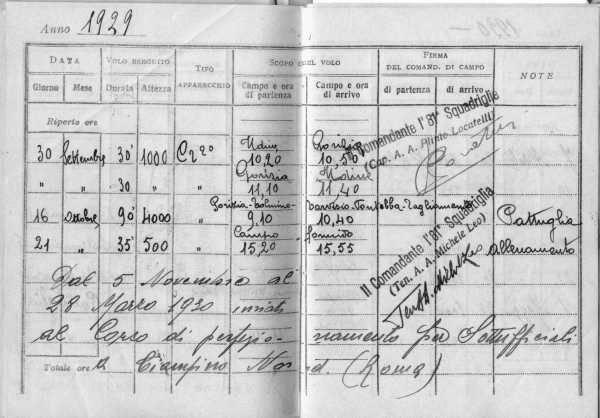 Anno 1929
DATA VOLO ESEGUITO TIPO APPARECCHIO SCOPO DEL VOLO FIRMA DEL COMAND. DI CAMPO NOTE
Giorno Mese Durata Altezza Campo e ora di partenza Campo e ora di arrivo di partenza di arrivo
Riporto ore
Il Comandante l'81ª Squadriglia
(Cap. A. A. Plinio Locatelli)
Udine Gorizia
30 Settembre 30' 1000 Cr 20 10,20 10,50
Gorizia Udine
" " 30 " " 11,10 11,40
Gorizia-Tolmino- Tarvisio-Pontebba-Tagliamento
16 Ottobre 90' 4000 " 9,10 10,40 Pattuglia
Campo Formido
21 " 35' 500 " 15,20 15,55 allenamento
Il Comandante l'81ª Squadriglia
(Ten. A. A. Michele Leo)
Dal 5 Novembre al
28 Marzo 1930 inviato
al Corso di perfezionamento per Sottufficiali
Totale ore a Ciampino Nord. (Roma)